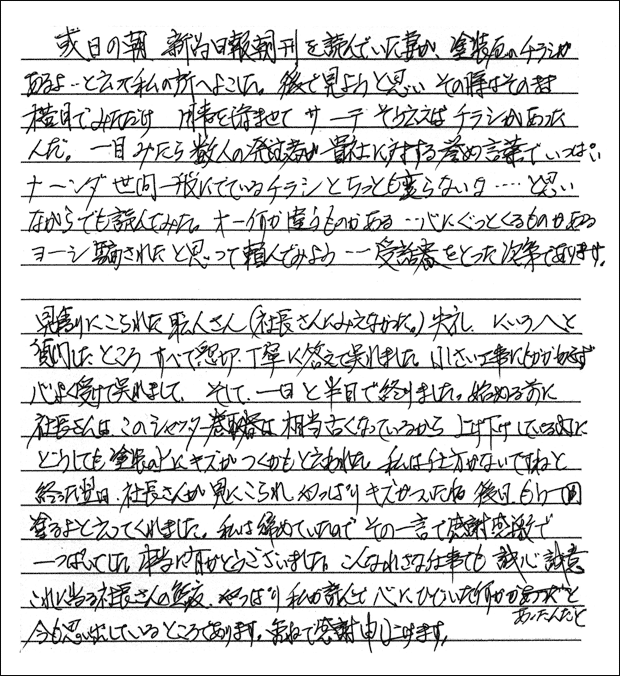 或日の朝 新潟日報朝刊を読んでいた妻が、塗装店のチラシが
あるよ‥と云って私の所へよこした。後で見ようと思い その時はそのまま
横目でみただけ 用事を済ませて サーテ そう云えば チラシがあった
んだ。一目みたら 数人の発注者が 貴社に対する誉め言葉でいっぱい
ナーンダ 世間一般にでているチラシとちっとも変らないな‥‥と思い
ながらでも読んでみた。オー何か違うものがある‥心にぐっとくるものがある
ヨーシ騙されたと思って頼んでみよう‥受話器をとった次第であります。
見積りにこられた職人さん(社長さんにみえなかった。)失礼 にいろいろと
質問したところ すべて親切 丁寧に答えて呉れました 小さい工事にもかかわらず
心よく受けて呉れまして、そして、一日と半日で終りました。始める前に
社長さんは、このシャッター巻取器は 相当古くなっているから 上げ下げしている内に
どうしても塗装の上にキズがつくかもと云われた。私は仕方がないですねと
終った翌日、社長さんが見にこられ やっぱりキズがついたね 後日、もう一回
塗るよと云ってくれました。私は諦めていたので その一言で感謝感激で
一っぱいでした 本当に有がとうございました。こんな小さな仕事でも 誠心誠意
これに当る社長さんの態度、やっぱり 私が読んで 心にひびいた何かがあったんだと
今も思い出しているところであります。重ねて感謝申し上げます。